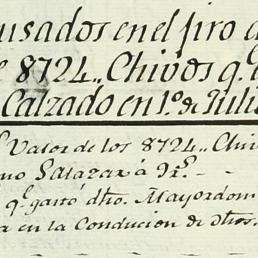 usados en el jiro d
e 8724,, Chivos q.e
Calzado en 1.o de Julio
Valor de los 8724,, Chiv
no Salazar á
q.e gastó dho. Mayordom
a en la Conducion de dhos.